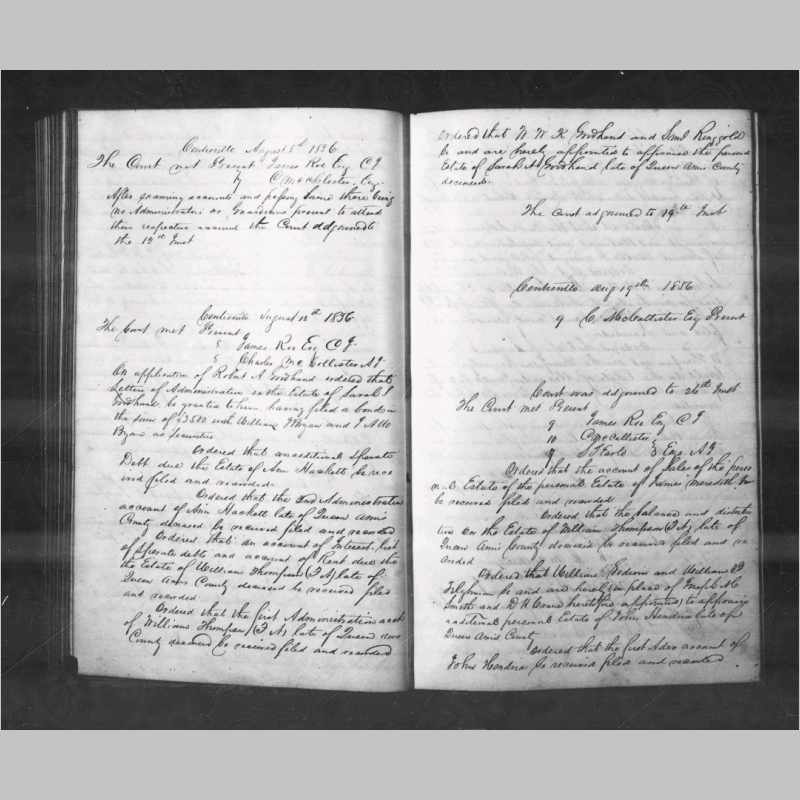 Centreville August 5th 1856
The Court met Present James Roe Esq C J
C McCollister Esq
After examining accounts and passing same there being
no Administrators or Guardians present to attend
their respective accounts the Court adjourned to
the 12th Inst
Centreville August 12th 1856
The Court met Present
James Roe Esq C J
Charles McCollister A J
On application of Robert A Goodhand ordered that
Letters of Administration on the Estate of Sarah
Goodhand be granted to him, having filed a bond in
the sum of with William and
Bryan as Securities
Ordered that an additional Sperate
Debt due the Estate of Ann Hackett be rece
ived filed and recorded
Ordered that the 2nd Administration
account of Ann Hackett late of Queen Ann's
County deceased be received filed and recorded
Ordered that an account of Interest, list
of Sperate debts and account of Rent due the
the Estate of William Thompson (F A) late of
Queen Anns County deceased be received filed
and recorded
Ordered that the first Administration acct
of William Thompson (F A) late of Queen Anns
County deceased be received filed and recorded
Ordered that W W K Goodhand and Saml Ringgold
be and are hereby appointed to appraise the personal
Estate of Sarah Goodhand late of Queen Anns County
deceased
The Court adjourned to 19th Inst
Centreville Aug 19th 1856
C. McCollister Esq Present
Court was adjourned to 26th Inst
The Court met Present
James Roe Esq C J
C McCollister
Esqs A J
Ordered that the account of Sales of the perso
nal Estate of the personal Estate of James Meredith
be received filed and recorded
Ordered that the balance and distribu
tion on the Estate of William Thompson (F A) late of
Queen Anns County deceased be received filed and re
corded
Ordered that William and William
be and are hereby (in place of
and heretofore appointed) to appraise
additional personal Estate of John late of
Queen Anns County
Ordered that the first Adm account of
John be received filed and recorded